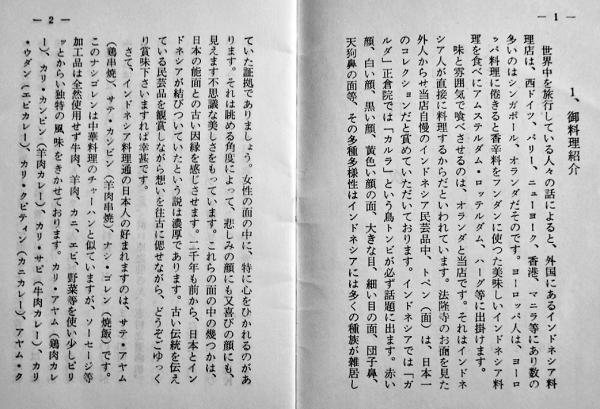 — 1 —
1、御料理紹介
世界中を旅行している人々の話によると、外国にあるインドネシア料
理店は、西ドイツ、パリー、ニューヨーク、香港、マニラ等にあり数の
多いのはシンガポール、オランダだそのです。ヨーロッパ人は、ヨーロ
ッパ料理に倦きると香辛料をフンダンに使つた美味しいインドネシア料
理を食べにアムステルダム・ロッテルダム、ハーグ等に出掛けます。
味と雰囲気で喰べさせるのは、オランダと当店です。それはインドネ
シア人が直接に料理するからだといわれています。法隆寺のお面を見た
外人からせ当店自慢のインドネシア民芸品中、トペン（面）は、日本一
のコレクションだと賞めていただいております。インドネシアでは「ガ
ルダ」正倉院では「カルラ」という鳥トンビが必ず話題に出ます。赤い
顔、白い顔、黒い顔、黄色い顔の面、大きな目、細い目の面、団子鼻、
天狗鼻の面等、その多種多様性はインドネシアには多くの種族が雑居し
— 2 —
ていた証拠でありましょう。女性の面の中に、特に心をひかれるのがあ
ります。それは眺める角度によって、悲しみの顔にも又喜びの顔にも、
見えます不思議な美しさをもっています。これらの面の中の幾つかは、
日本の能面との古い因縁を感じさせます。二千年も前から、日本とイン
ドネシアが結びついていたという説は濃厚であります。古い伝統を伝え
ている民芸品を観賞しながら想いを往古に偲せながら、どうぞごゆっく
り賞味下さいますれば幸甚です。
さて、インドネシア料理通の日本人の好まれますのは、サテ・アヤム
（鶏串焼）、サテ・カンビン（羊肉串焼）、ナシ・ゴレン（焼飯）です。
このナシゴレンは中華料理のチャーハンと似ていますが、ソーセージ等
加工品は全然使用せず牛肉、羊肉、カニ、エビ、野菜等を使い少しピリ
ッとからい独特の風味をきかせております。カリ・アヤム（鶏肉カレ
ー）、カリ・カンビン（羊肉カレー）、カリ・サピ（牛肉カレー）、カリ
・ウダン（エビカレー）、カリ・クピティン（カニカレー）、アヤム・ク